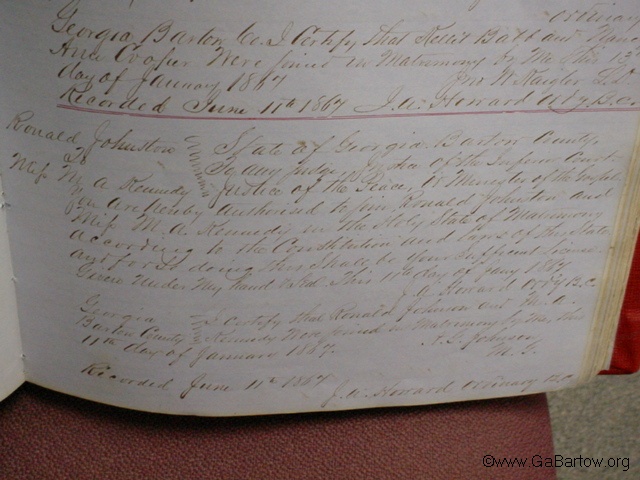 ordinary
Georgia Bartow Co. I Certify that Kellit Babb and Nancy
Ann Cooper Were joined in Matrimony by Me this 13th
day of January 1867
Jno W Naylor
Recorded June 11th 1867 J. A. Howard Ord'y B.C.
Ronald Johnston State of Georgia Bartow County,
To To any Judge, Justice of the Inferior Court
Miss M. A. Kennedy Justice of the Peace, or Minister of the Gospel
you are hereby authorised to join Ronald Johnston and
Miss M. A. Kennedy in the Holy State of Matrimony
according to the Constitution and laws of this State
and for so doing this shall be your sufficient license
Given under my hand & seal This 11th day of Jany 1867
J. A. Howard Ord'y B.C.
Georgia I certify that Ronald Johnson and M. A.
Bartow County Kennedy Were joined in Matrimony by Me, this
11th day of January 1867. Johnson
M. G.
Recorded June 11th 1867
J. A. Howard Ordinary B.C.
©www.GaBartow.org